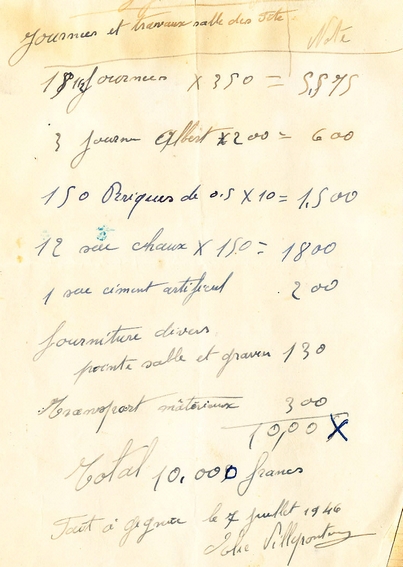 Journees et travaux salle des Fete
Note
Journees X 350 = 5,575
3 Journe Albert X 200 = 600
150 Briques de 0.5 X 10 = 1,500
12 sac chaux X 150 = 1800
1 sac ciment artificiel 200
fourniture divers
pointe sable et gravier 130
Transport matériaux 300
10,00 X
Total 10.000 francs
Fait à le 7 juillet 1946